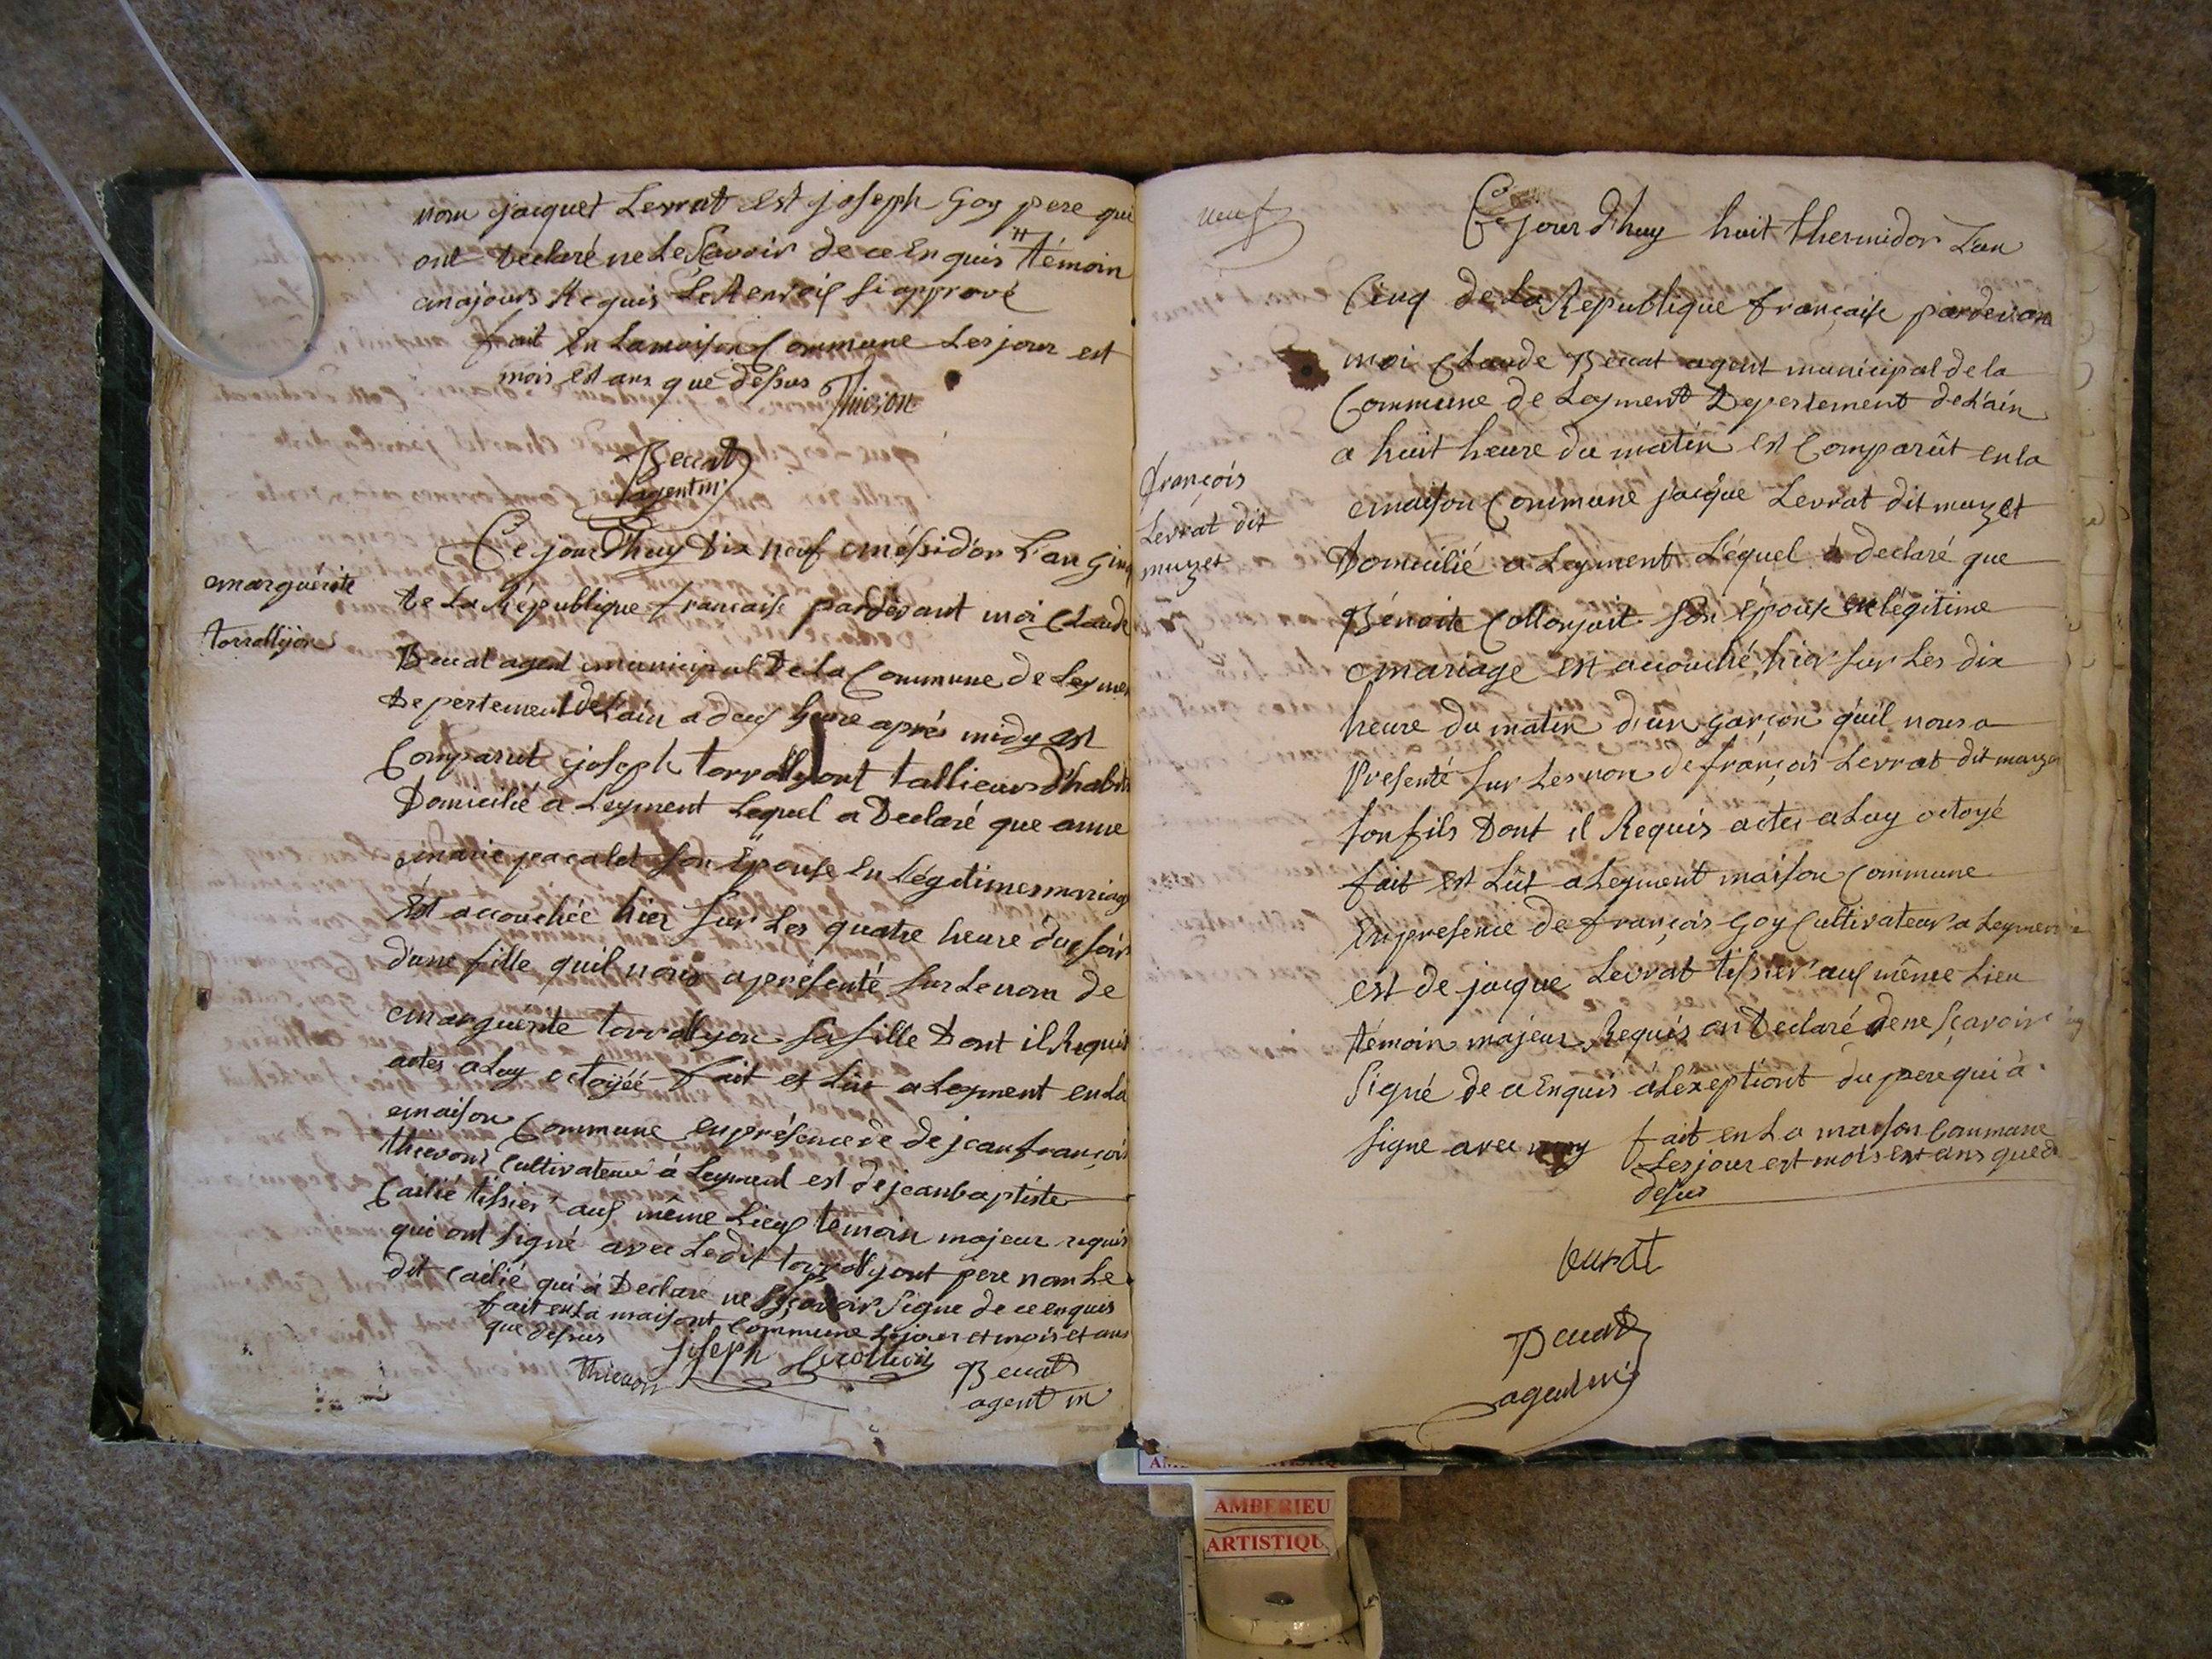 nom jacquet Levrat est joseph Goy pere qui
ont Déclaré ne Le Scavoir de ce En quis témoin
majours Requis Le Renvois si apprové
fait En La maison Commune Les jour est
mois est ans que dessus Thievon
Beccat
agent m
Ce jourd'huy Dix neuf méssidor L'an Cinq
marguérite
torrollyon
de La République francaise pardevant moi Claude
Beccat agent municipal De La Commune de Leyment
Depertement de L'ain a deux heure aprés midy est
Comparut joseph torrollyont tallieur d'habits
Domicilié a Leyment Lequel a Declaré que anne
marie pacalet son Epouse En Légitimes mariage
Est accouchée hier sur Les quatre heure du soir
d'une fille quil nous a présenté sur Le nom de
marguerite torrollyon sa fille Dont il Requis
actes a Luy octoyéé fait et Lût a Leyment en La
maison Commune en présence de de jean françois
thievont Cultivateur à Leyment est de jean baptiste
Cailié tissier aux même Lieux temoin majeur requis
qui ont signé avec Le dit torrollyont pere nom Le
dit Cailié qui à Declaré ne Sçavoir Signe de ce enquis
fait en La maisont Commune Le jour et mois et ans
que dessus
Thievon joseph torollion Beccat
agent m
neuf
Ce jour d'huy huit thermidor L'an
Cinq de La Republique française pardevant
moi Claude Beccat agent municipal de la
Commune de Leyment Depertement de L'ain
a huit heure du matin est Comparût en la
françois
Levrat dit
muzet
maison Commune jacque Levrat dit muzet
Domicilié a Leyment Léquel à declaré que
Bénoite Collonjait son épouse en légitime
mariage est accouché hier sur Les dix
heure du matin d'un garçon qu'il nous a
Presenté sur Les nom de françois Levrat dit muzet
son fils Dont il Requis actes a Luy octoyé
fait est Lût a Leyment maison Commune
En presence de françois Goy Cultivateur a Leyment
est de jacque Levrat tissier aux même Lieu
témoin majeur Requis on Declaré de ne sçavoir
signé de ce Enquis à L'éxeptiont du pere qui à
signe avec moy fait en La maison Commune
Les jour est mois est ans que
desus
levrat
Beccat
agent m
AMBERIEU
ARTISTIQU